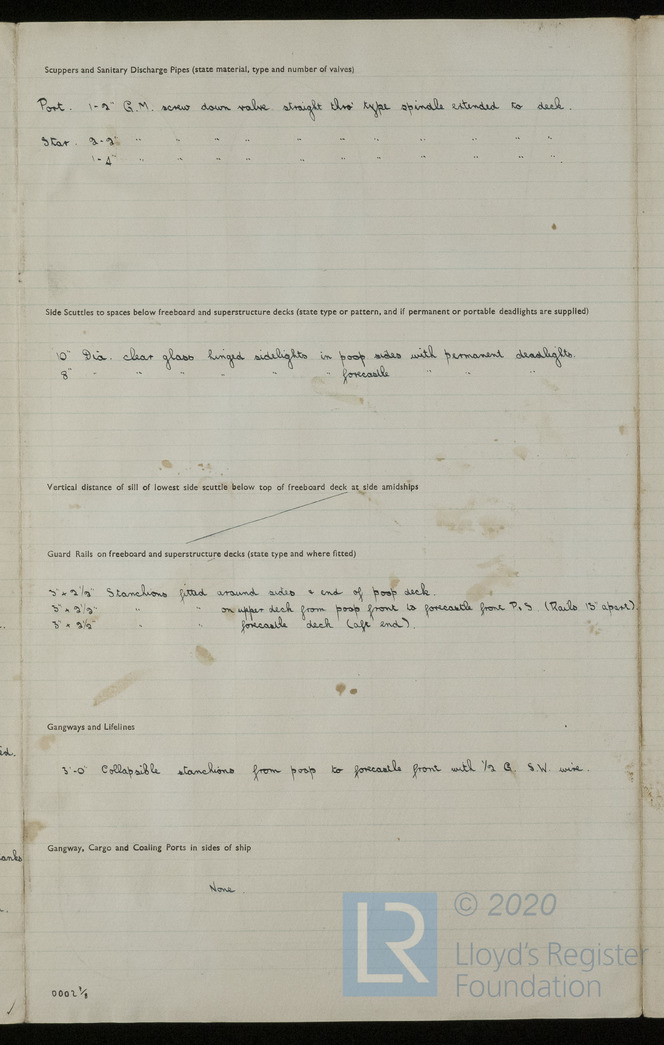 Scuppers and Sanitary Discharge Pipes (state material, type and number of valves)
Port. 1-2" G.M. screw down valve straight thro' type spindle extended to deck.
Star. 2-2" " " " " " " " " " "
1-4" " " " " " " " " " "
Side Scuttles to spaces below freeboard and superstructure decks (state type or pattern, and if permanent or portable deadlights are supplied)
10" Dia. clear glass hinged sidelights in poop sides with permanent deadlights.
8" " " " " " " forecastle " " "
Vertical distance of sill of lowest side scuttle below top of freeboard deck at side amidships
Guard Rails on freeboard and superstructure decks (state type and where fitted)
3" x 2½" Stanchions fitted around sides & end of poop deck.
3" x 2½" " " on upper deck from poop front to forecastle front P & S (Rails 13" apart).
3" x 2½" " " forecastle deck (aft end).
Gangways and Lifelines
ed.
3'-0" Collapsible stanchions from poop to forecastle front with ½ G. S.W. wire.
Gangway, Cargo and Coaling Ports in sides of ship
anks
None
© 2020
LR
Lloyd's Register
Foundation
0002 ⅛